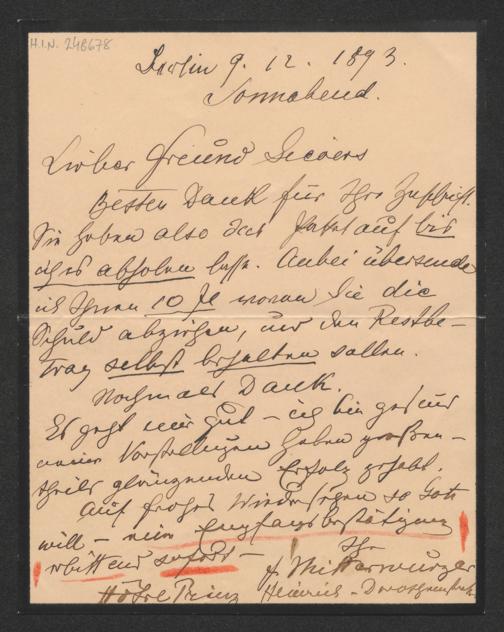 H.I.N. 248678
Berlin 9. 12. 1893.
Sonnabend.
Lieber Freund Sievers
Besten Dank für Ihre Zuschrift.
Sie haben also das Paket auf bis
ich es abholen lasse. Anbei übersende
ich Ihnen 10 fl wovon Sie die
Schuld abziehen, und den Restbe-
trag selbst behalten sollen.
Nochmals Dank.
Es geht mir gut – ich bin gesund
meine Vorstellungen haben großen-
theils glänzenden Erfolg gehabt.
Auf frohes Wiedersehen so Gott
will – eine Empfangsbestätigung
erbittend sofort –
Ihr
F. Mitterwurzer
Hôtel Prinz Heinrich – Dorotheenstr.